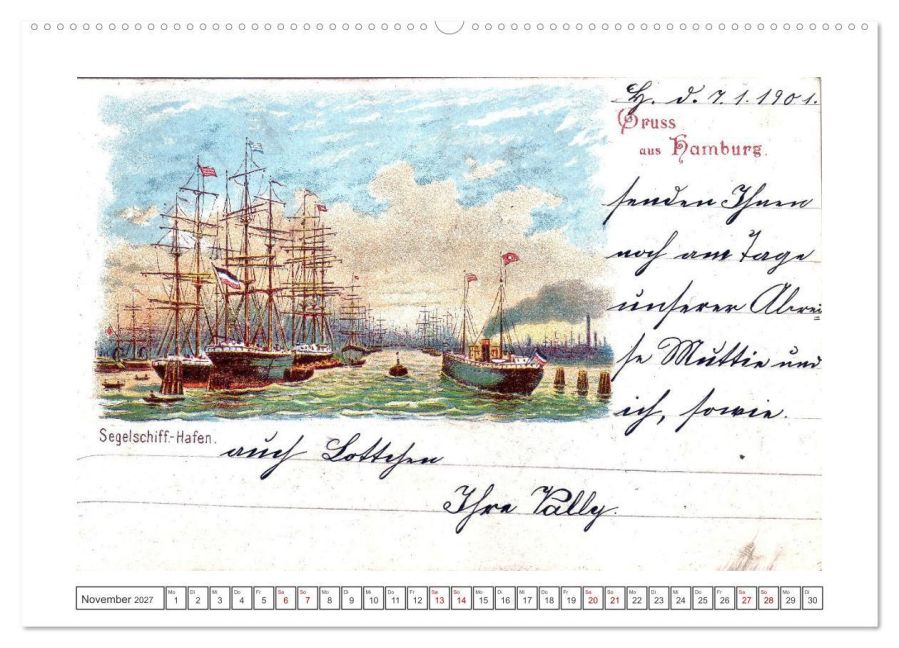 H. d. 7.1.1901.
Gruss
aus Hamburg.
senden Ihnen
noch am Tage
unserer Abrei=
se Muttie und
ich, sowie
Segelschiff-Hafen.
auch Lottchen
Ihre Vally.
November 2027
Mo Di Mi Do Fr Sa So Mo Di Mi Do Fr Sa So Mo Di Mi Do Fr Sa So Mo Di Mi Do Fr Sa So Mo Di
1 2 3 4 5 6 7 8 9 10 11 12 13 14 15 16 17 18 19 20 21 22 23 24 25 26 27 28 29 30